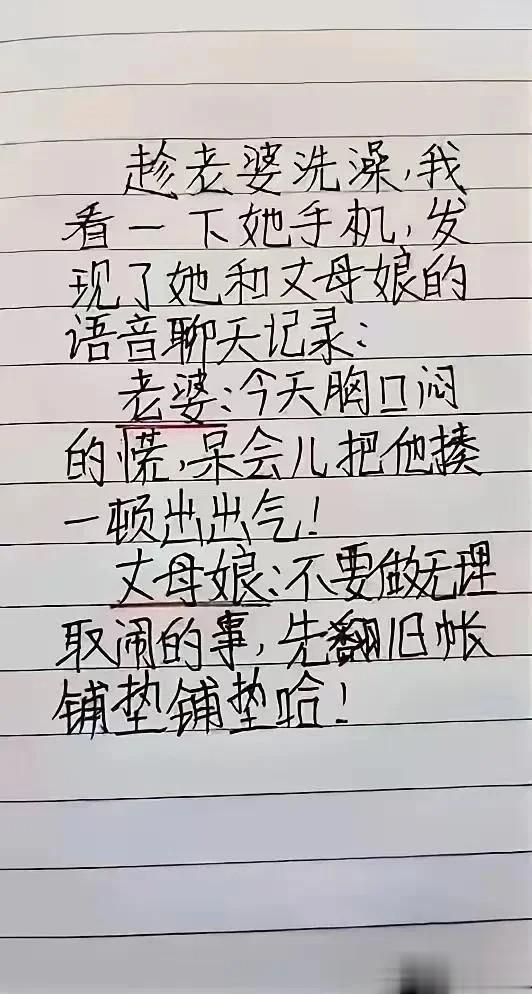 趁老婆洗澡,我
看一下她手机,发
现了她和丈母娘的
语音聊天记录:
老婆:今天胸口闷
的慌,呆会儿把他揍
一顿出出气!
丈母娘:不要做无理
取闹的事,先翻旧帐
铺垫铺垫哈!